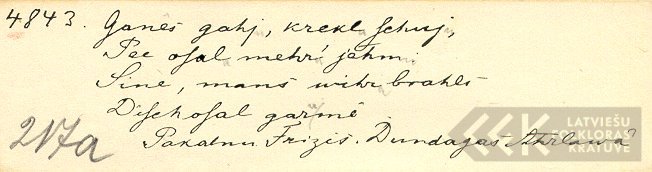 4843. Ganês gahj, krekl schuj,
Pee osal mehr' jehm;
Sinê, mans wihr brahls
Disch osal garmê
217a
Pakalnu Frizis. Dundagas
LATVIEŠU
FOLKLORAS
KRĀTUVE